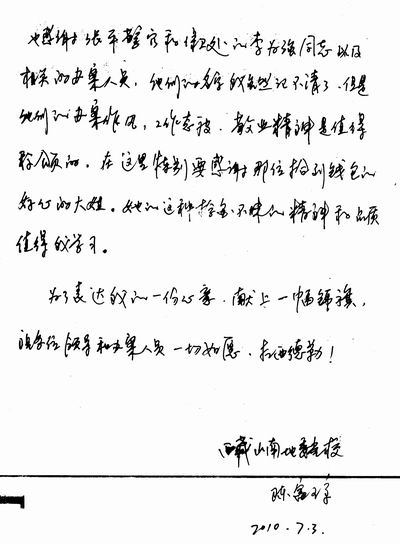 也感谢张平警官和保卫处的李为强同志以及
相关的办案人员，他们的名字我虽然记不清了，但是
他们的办案作风，工作态度，敬业精神是值得
称颂的。在这里特别要感谢那位捡到钱包的
好心的大姐。她的这种拾金不昧的精神和品质
值得我学习。
为了表达我的一份心意，献上一幅锦旗，
祝各位领导和办案人员一切如愿，扎西德勒！
西藏山南地委党校
陈
2010.7.3.